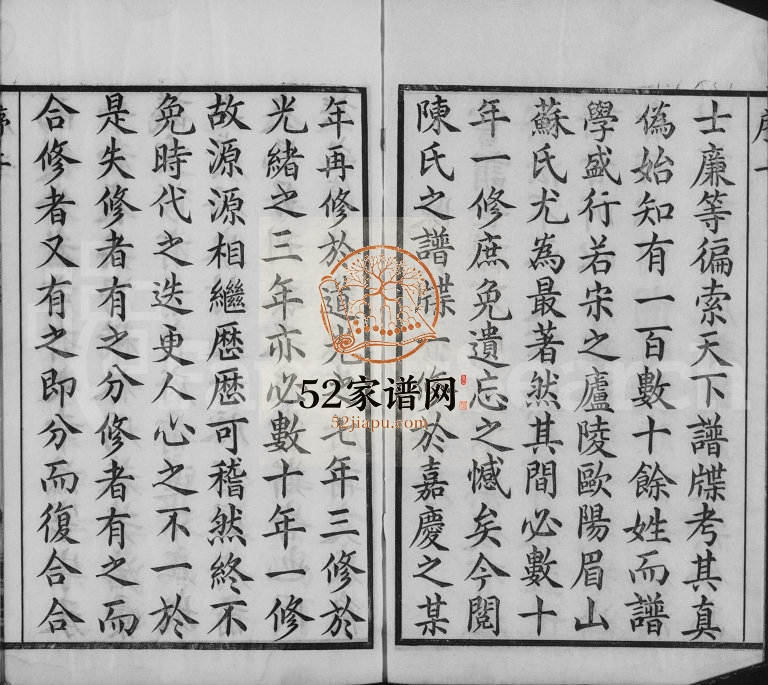 士廉等徧索天下譜牒考其真
偽始知有一百數十餘姓而譜
學盛行若宋之廬陵歐陽眉山
蘇氏尤為最著然其間必數十
年一修庶免遺忘之憾矣今閱
陳氏之譜牒一修於嘉慶之某
年再修於道光七年三修於
光緒之三年亦必數十年一修
故源源相繼歷歷可稽然終不
免時代之迭更人心之不一於
是失修者有之分修者有之而
合修者又有之即分而復合合
52家谱网
52jiapu.com